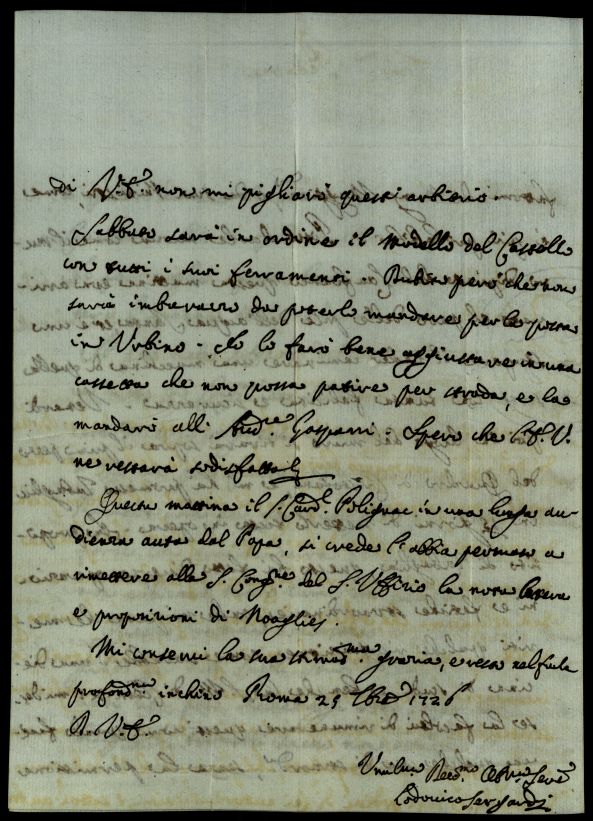 di V. E. non mi pigliarò questi arbitrio.
Sabbato sarà in ordine il modello del Castello
con tutti i suoi ferramenti. però che non
sarà imbarazzo da poterlo mandare per la posta
in Urbino. Io lo farò bene aggiustare in una
cassetta che non possa patire per strada, e la
mandarò all' Gasparri. Spero che V.
ne restarà sodisfatta
Questa mattina il S. Card.l Polignac in una lunga au-
dienza auta dal Papa, si crede l'abbia permosso a
rimettere alla S. Cong.ne del S. Uffizio la nota
e proposizioni di Noaglies.
Mi conservi la sua stimad.ma grazia, e resto nel farle
profond.mo inchino Roma 25 1726
D. V. E.
Umiliss.
Lodovico Sergardi